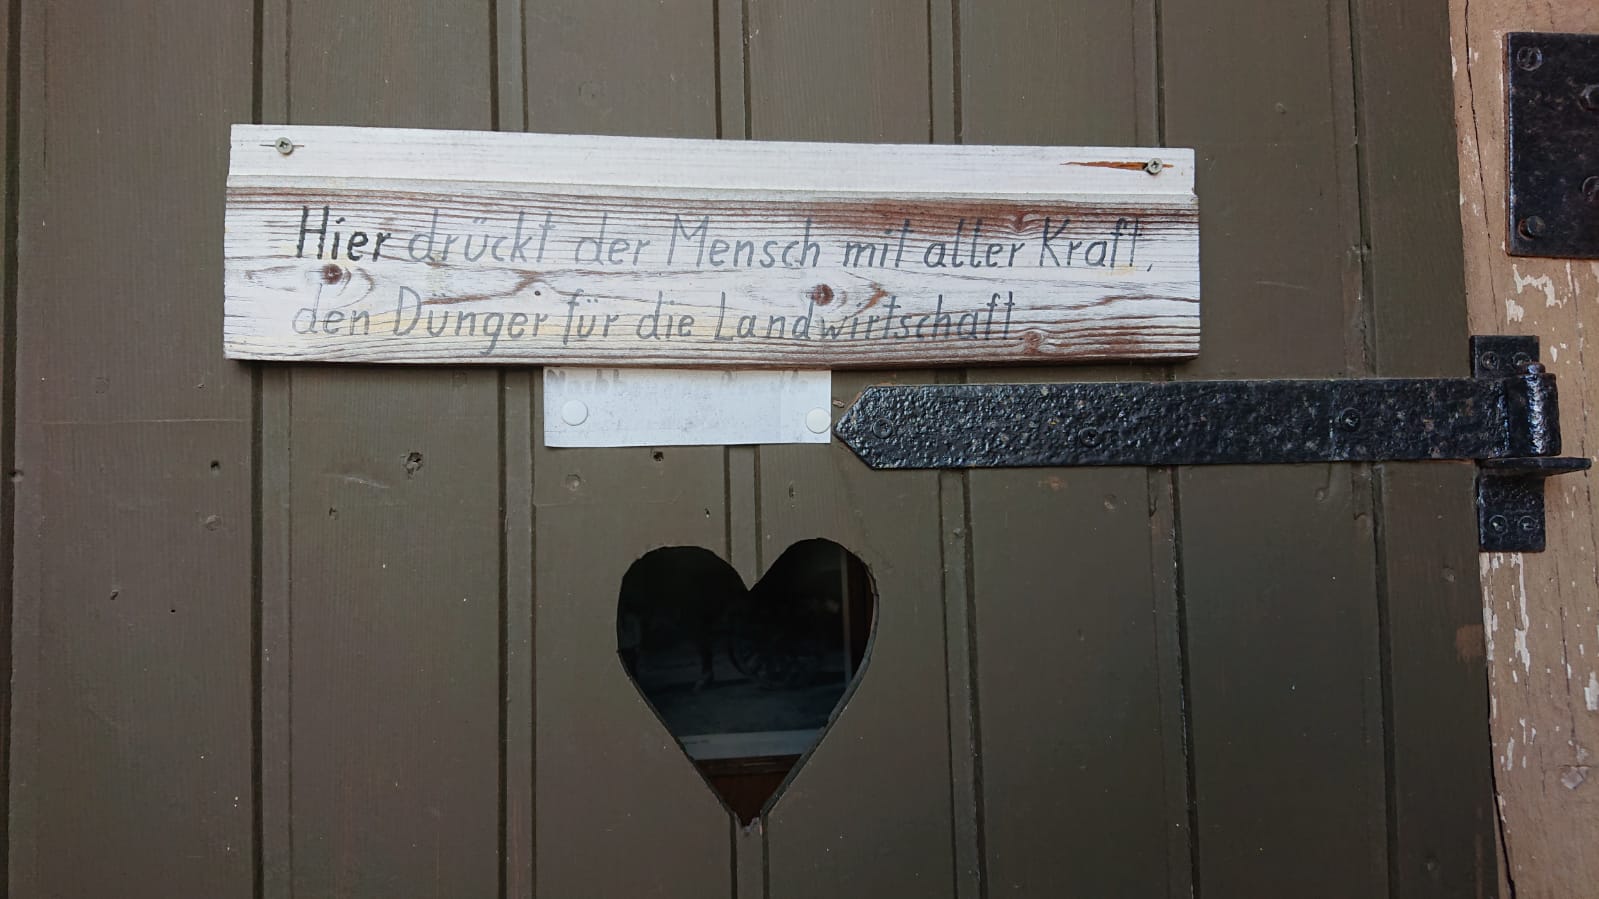 Hier drückt der Mensch mit aller Kraft,
den Dünger für die Landwirtschaft.